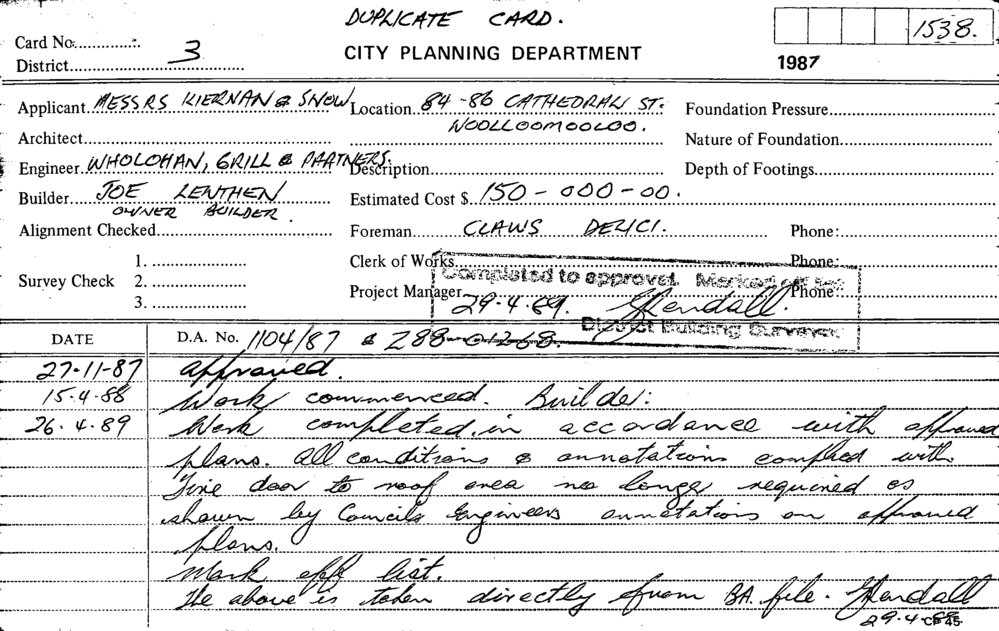 DUPLICATE CARD.
Card No.
1538.
District 3
CITY PLANNING DEPARTMENT
1987
Applicant MESSRS KIERNAN & SNOW
Location 84-86 CATHEDRAL ST.
WOOLLOOMOOLOO.
Foundation Pressure
Architect
Nature of Foundation
Engineer WHOLOHAN, GRILL & PARTNERS.
Description
Depth of Footings
Builder JOE LENTHEN
OWNER BUILDER
Estimated Cost $ 150-000-00.
Alignment Checked
Foreman CLAWS DELICI.
Phone:
Clerk of Works
Phone:
Survey Check 1.
2.
3.
Completed to approval. Marked off
Project Manager
Phone:
29.4.89. Glendall.
District Building Surveyor
DATE D.A. No. 1104/87 & Z88-01268.
27.11-87 approved.
15.4.88 Work commenced. Builder:
26.4.89 Work completed in accordance with approved
plans. All conditions & annotations complied with
Fire door to roof area no longer required as
shown by Councils Engineers annotations on approved
plans.
Mark off list.
The above is taken directly from BA. file. Glendall
29.4.89
CF45